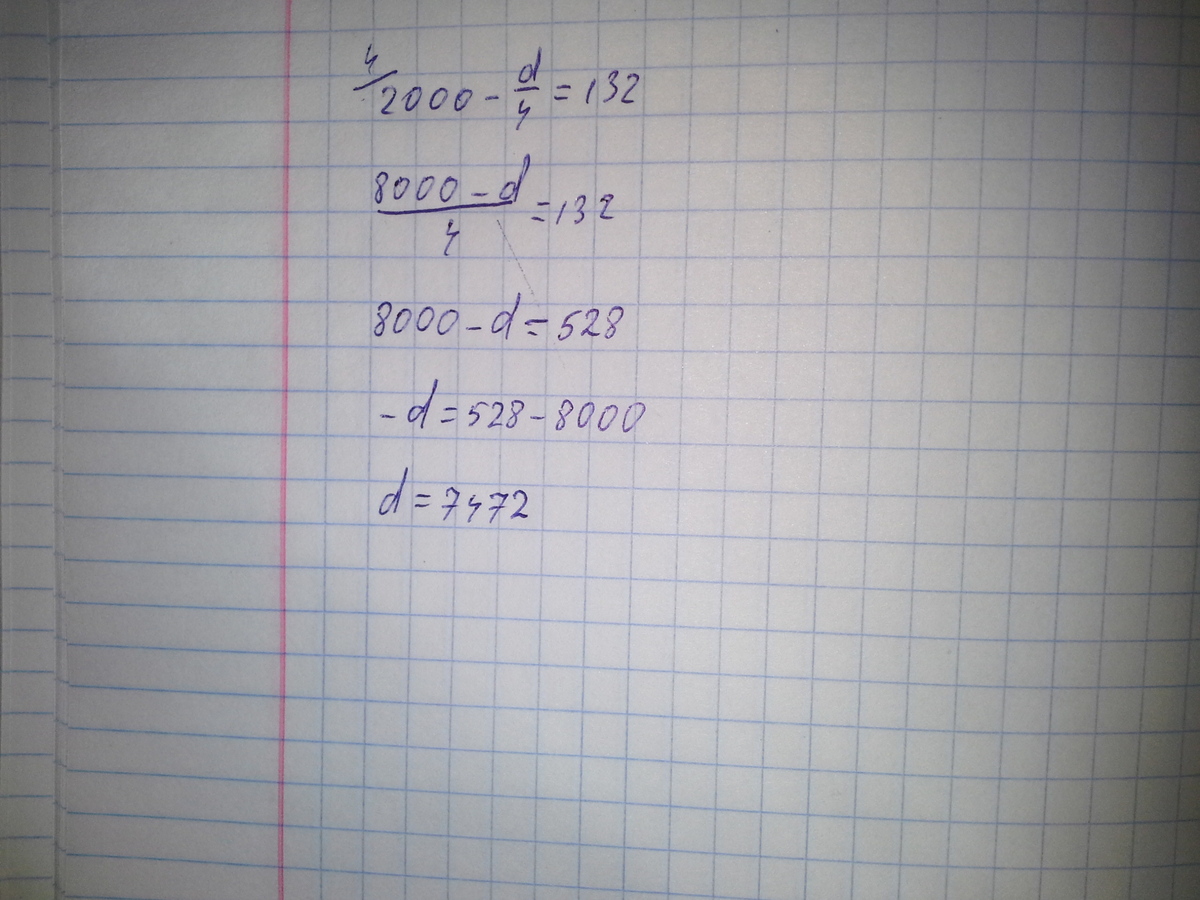 4/2000 - d/4 = 132
8000 - d/4 = 132
8000 - d = 528
- d = 528 - 8000
d = 7472